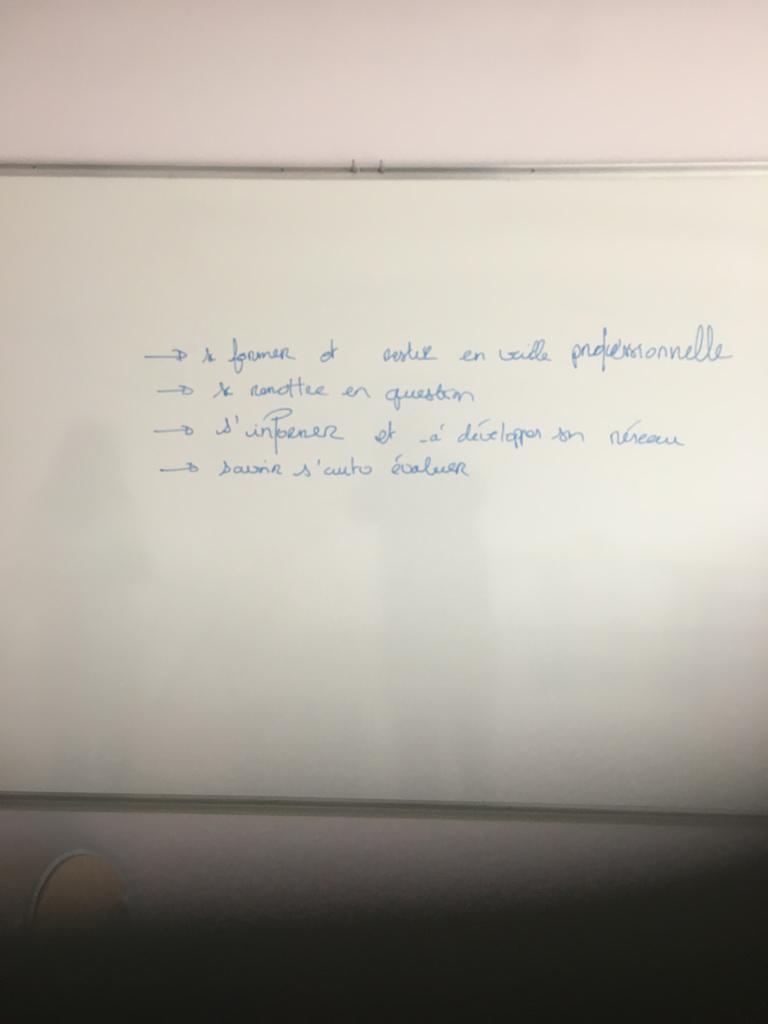 → se former et rester en veille professionnelle
→ se remettre en question
→ s'informer et à développer son réseau
→ savoir s'auto évaluer